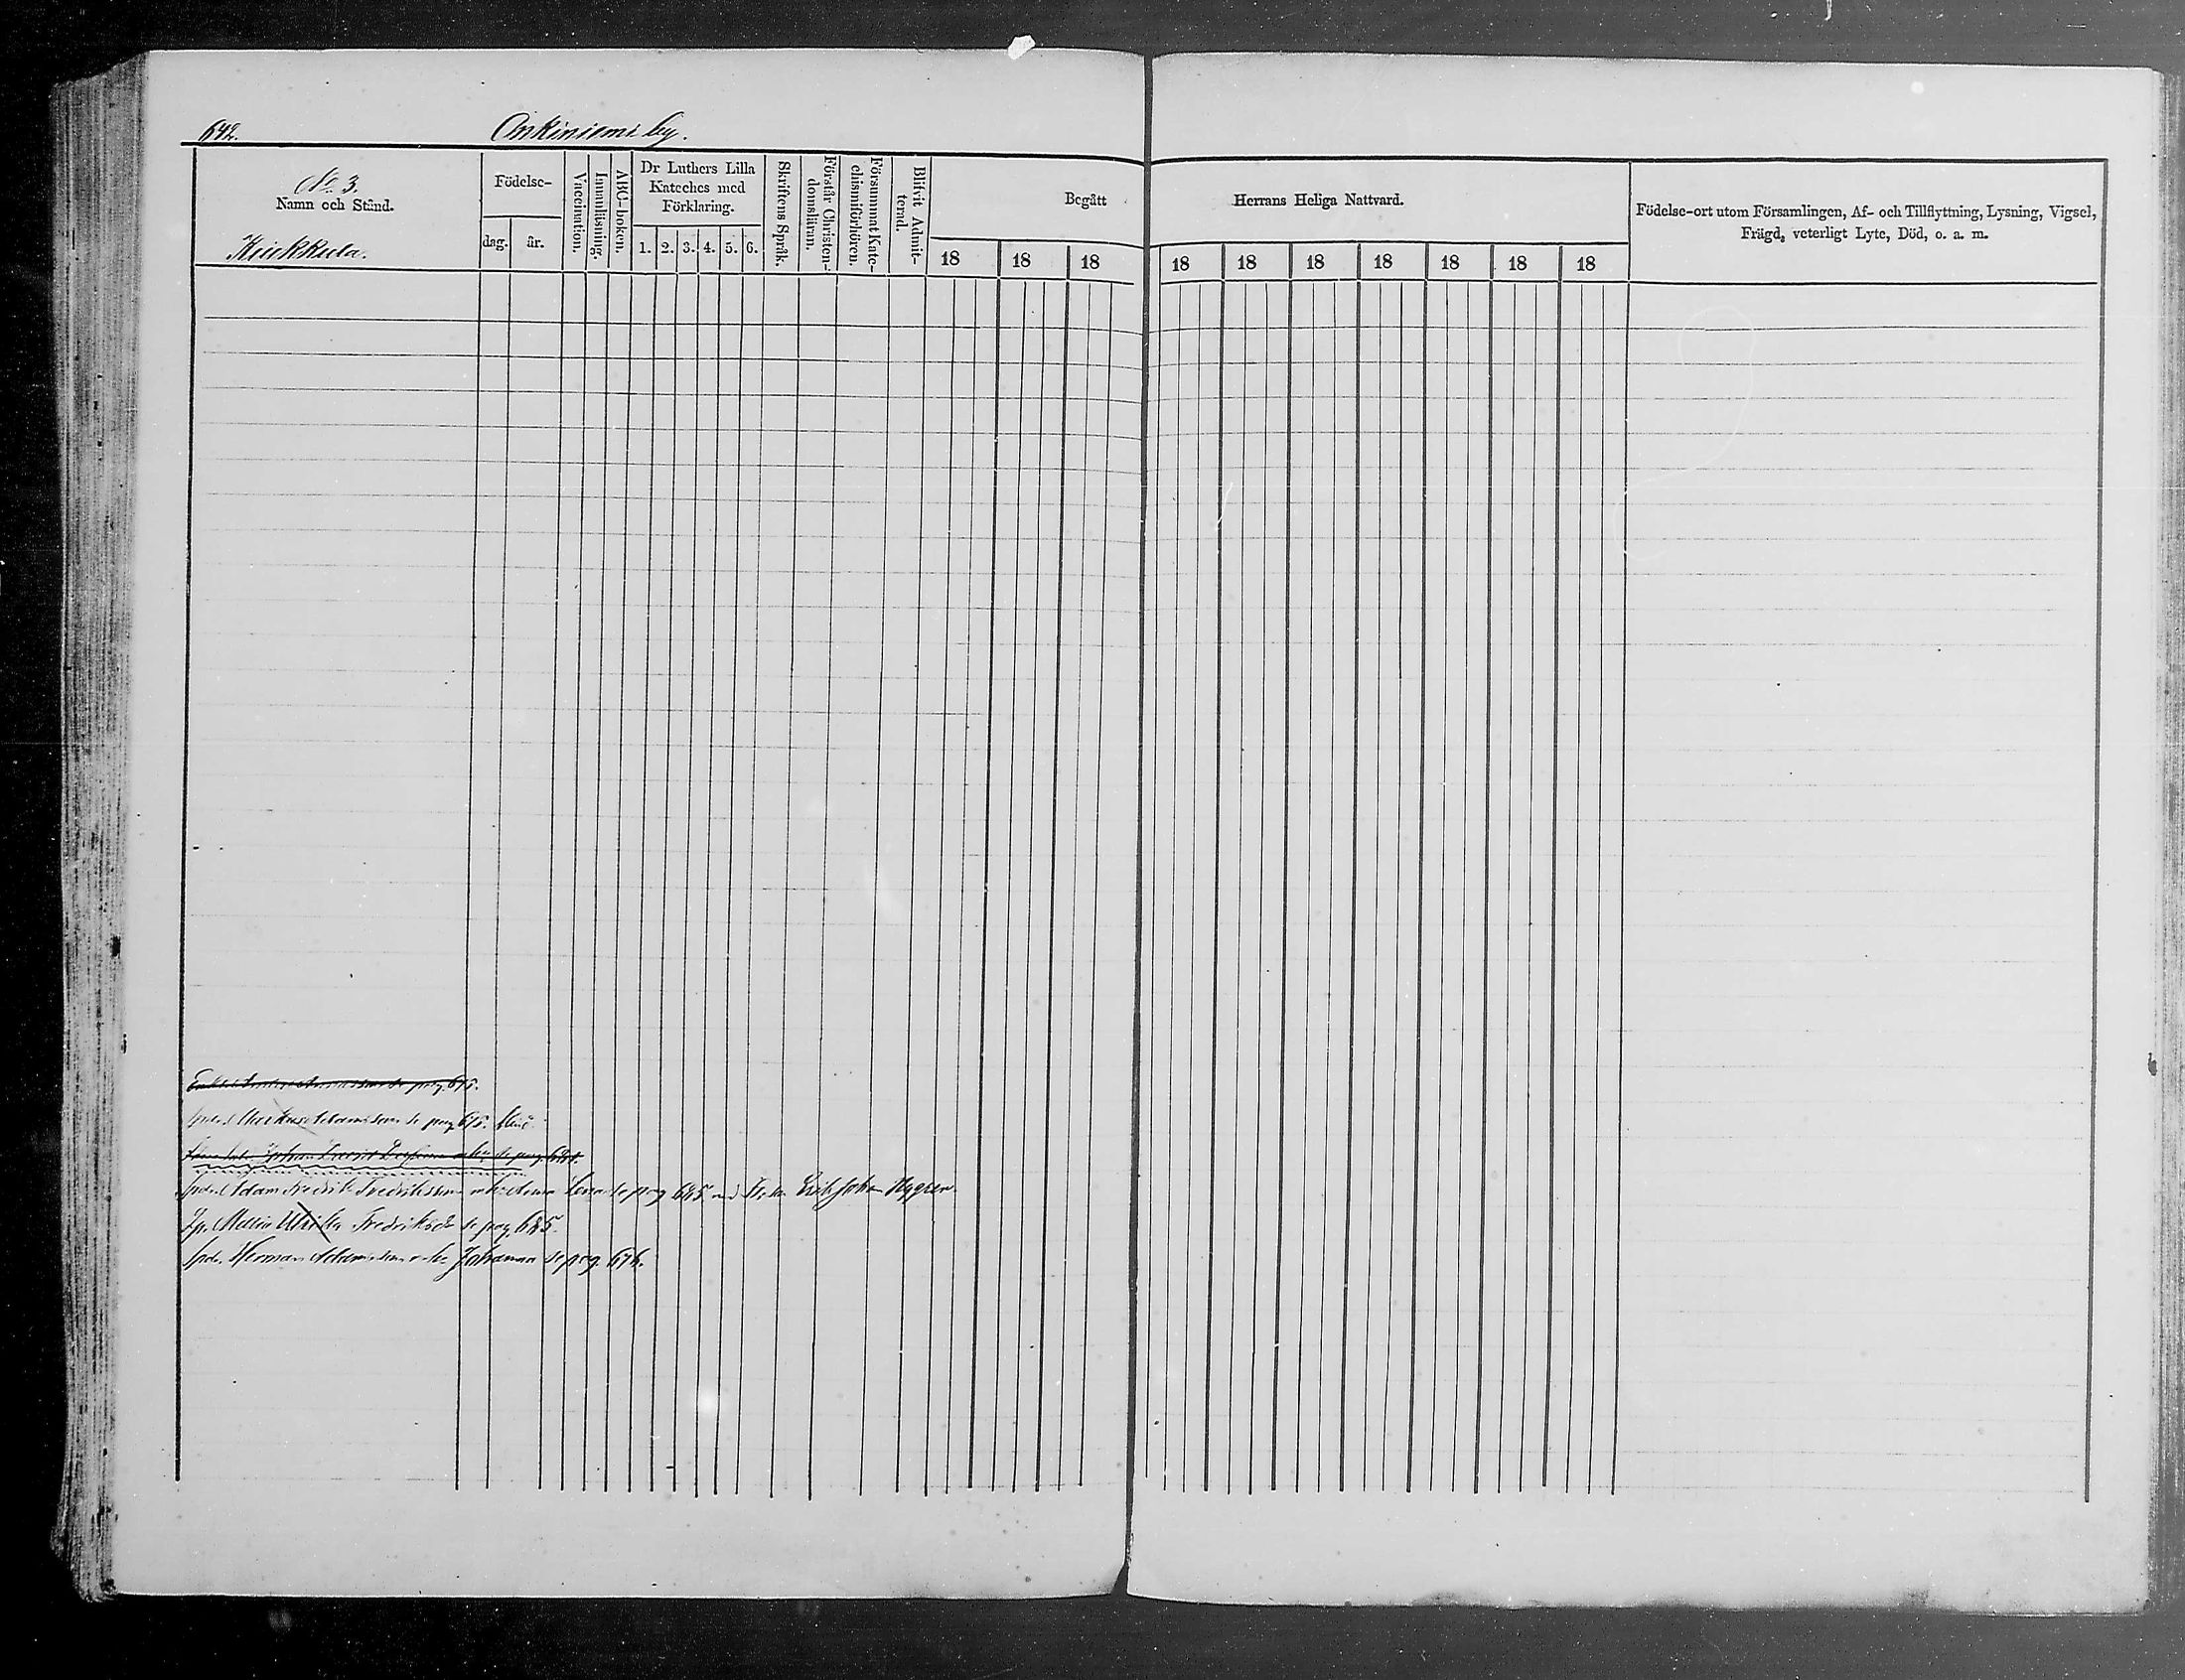 642. Onkiniemi by.
No. 3.
Namn och Stånd.
Kiukkula.
Födelse-
dag. år.
Vaccination.
Innanläsning.
ABC-boken.
Dr Luthers Lilla
Kateches med
Förklaring.
1. 2. 3. 4. 5. 6.
Skriftens Språk.
Förstår Christen-
domsläran.
Försummat Kate-
chismiförhören.
Blifvit Admit-
terad.
Begått Herrans Heliga Nattvard.
18 18 18 18 18 18 18 18 18 18
Födelse-ort utom Församlingen, Af- och Tillflyttning, Lysning, Vigsel,
Frägd, veterligt Lyte, Död, o. a. m.
se pag. 675.
Adamsson se pag. 675.
Johan se pag. 681.
Adam Fredrik Fredriksson se pag 685 Erik Johan Nygren
Ulrika Fredriksdr se pag. 685.
Herman Adamsson Johanna se pag. 676.